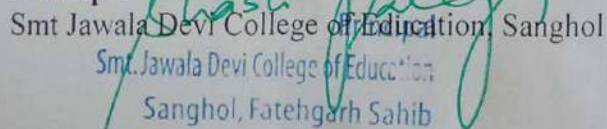 Smt Jawala Devi College of Education, Sanghol
Principal
Smt. Jawala Devi College of Education
Sanghol, Fatehgarh Sahib